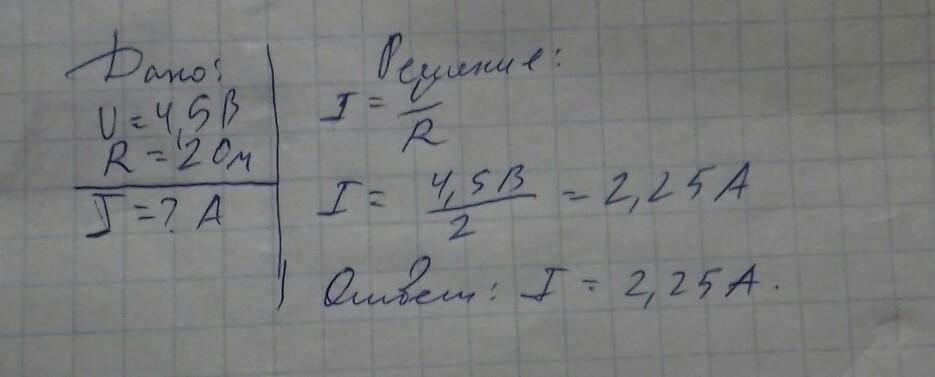 Дано:
U = 4,5 В
R = 2 Ом
I = ? А
Решение:
I = U/R
I = 4,5 В/2 = 2,25 А
Ответ: I = 2,25 А.